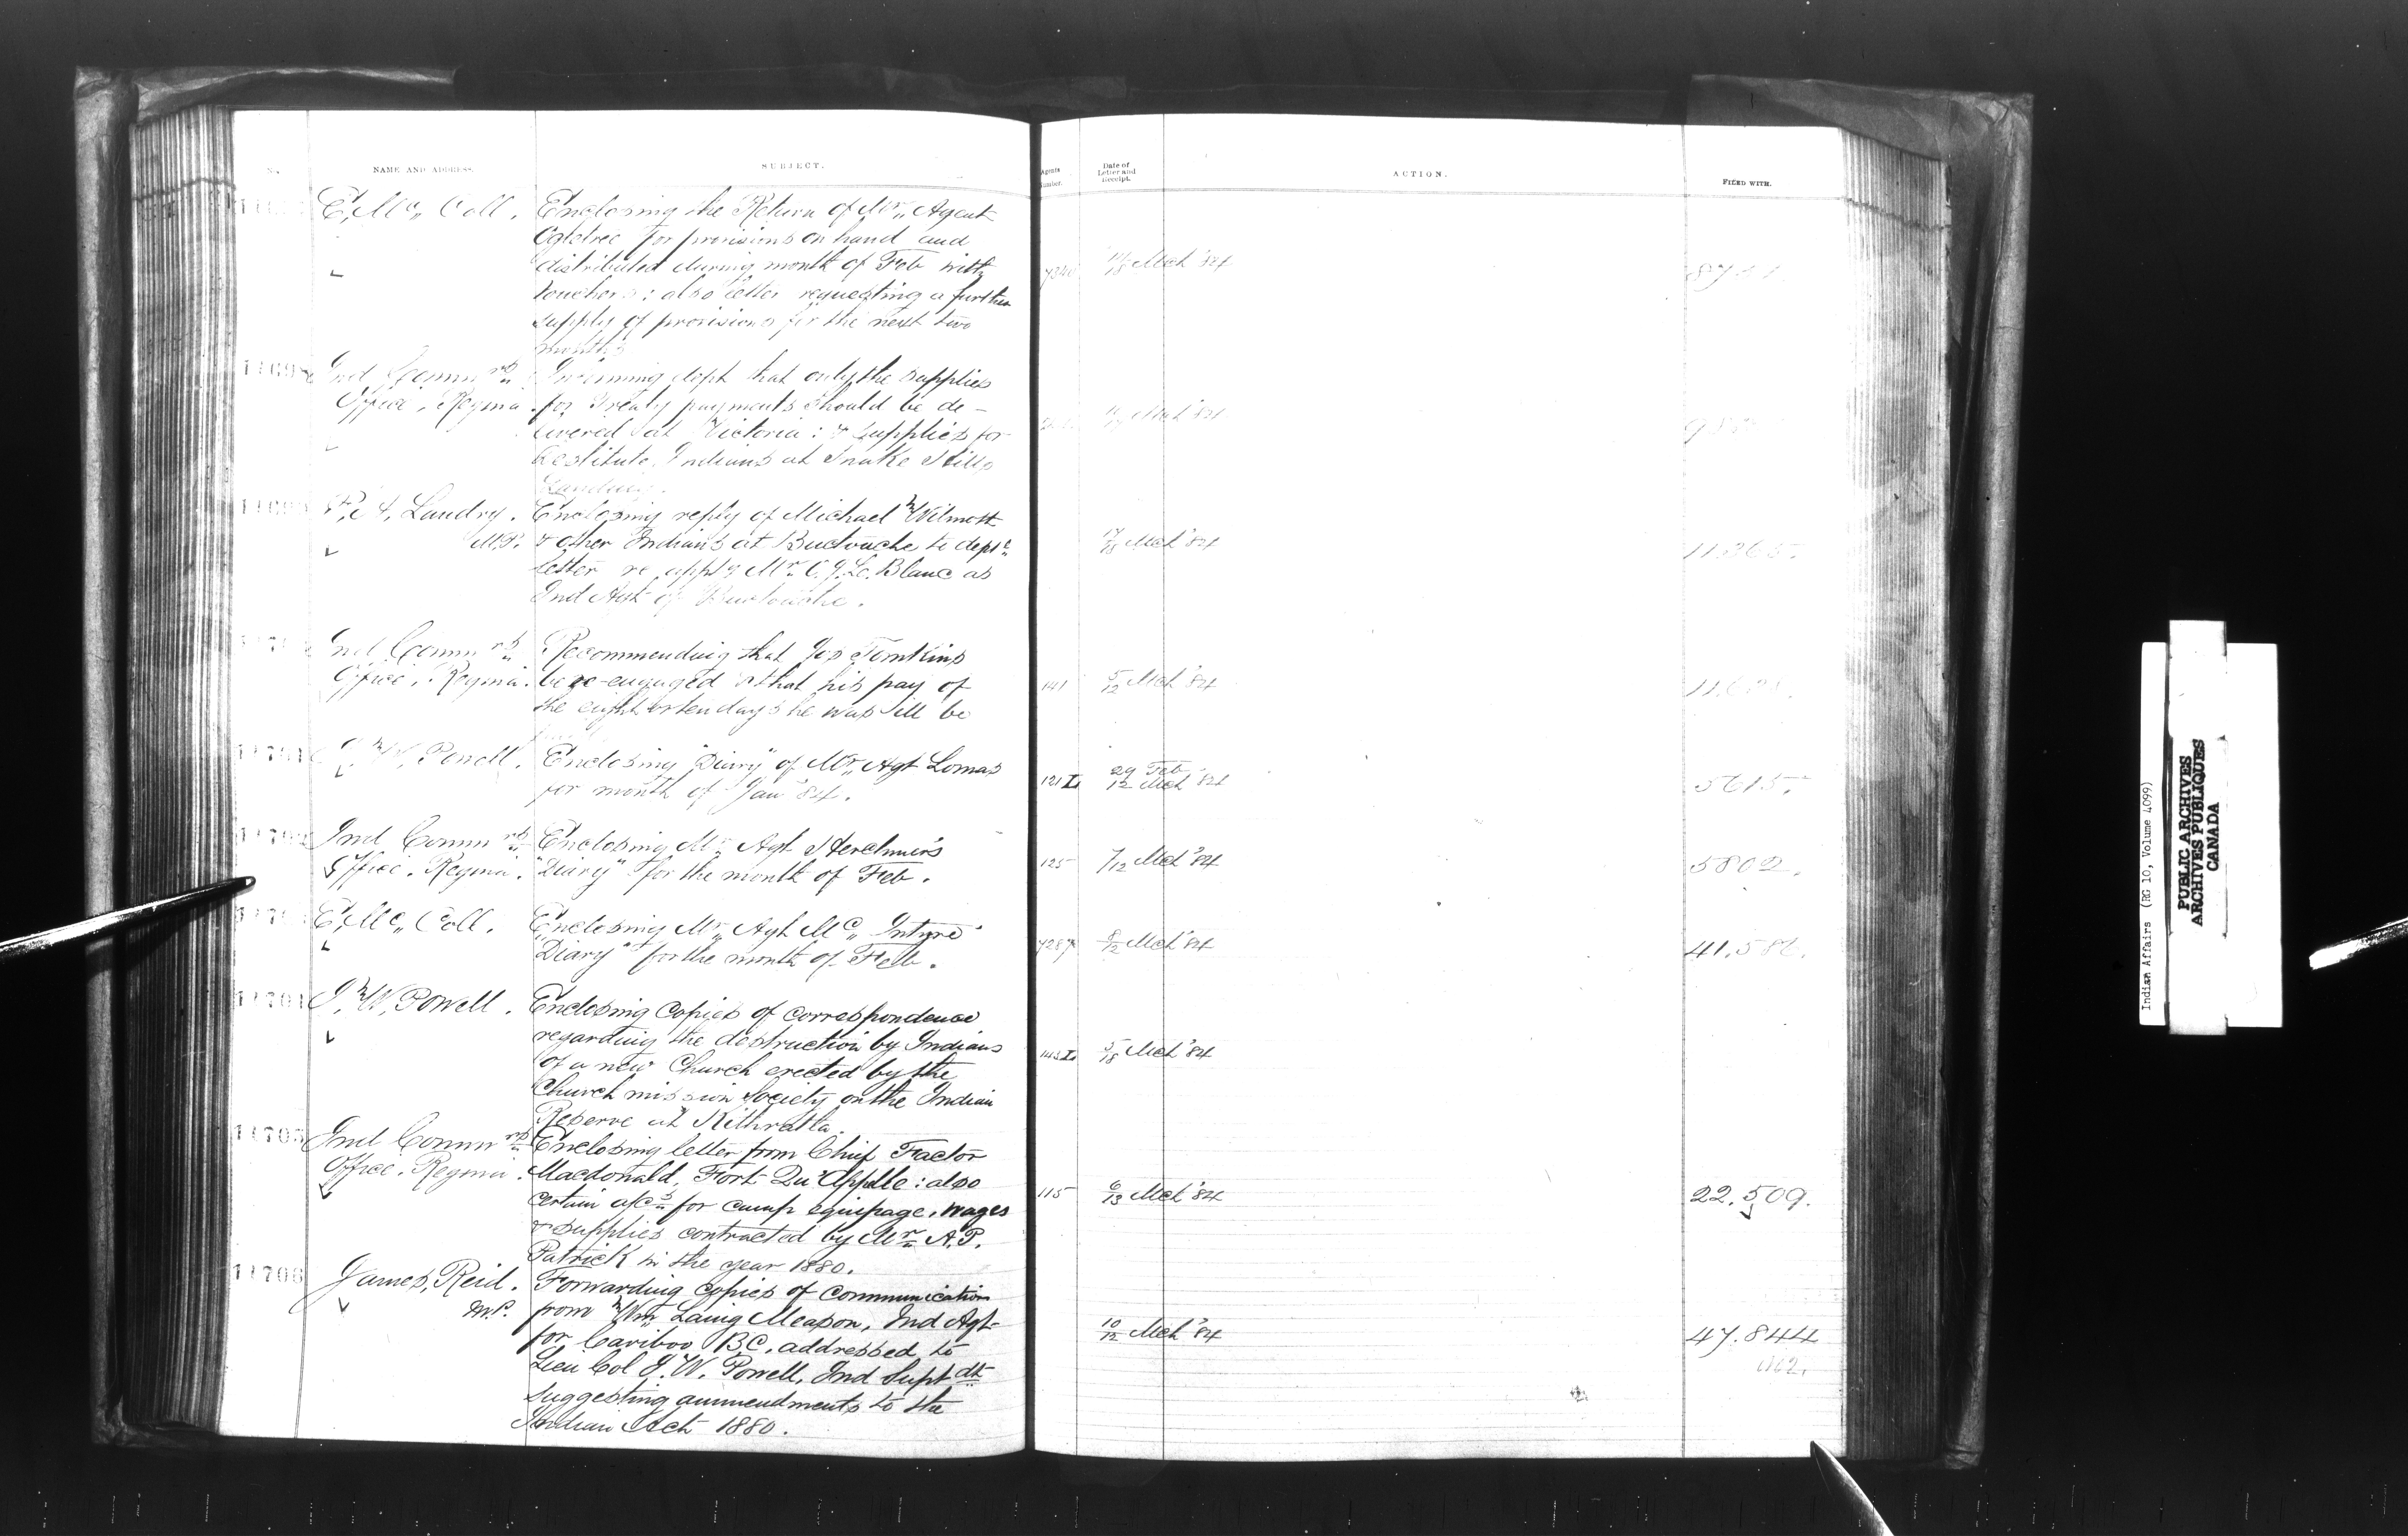 NAME AND ADDRESS.
SUBJECT.
Agents Number.
Date of Letter and Receipt.
ACTION.
FILED WITH.
E, Mc,, Coll.
Enclosing the Return of Mr,, Agent
Ogletree for provisions on hand and
distributed during month of Feb with
vouchers: also letter requesting a further
supply of provisions for the next two
months
14/18 Mch '84
Ind Commrs
Office, Regina.
Informing dept that only the supplies
for Treaty payments should be de-
livered at Victoria: & supplies for
destitute Indians at Snake Hills
P, A, Landry.
M.P.
Enclosing reply of Michael Wilmott
& other Indians at Buctouche to depts
letter re appt of Mr. C. J. Le. Blanc as
Ind Agt of Buctouche.
17/18 Mch '84
11365.
Ind Commrs
Office, Regina.
Recommending that Jos Tomkins
be re-engaged & that his pay of
the eight or ten days he was ill be
141
5/12 Mch '84
I, W, Powell.
Enclosing "Diary" of Mr,, Agt Lomas
for month of Jan '84.
121 L
29 Feb
12 Mch '84
5615.
Ind Commrs
Office. Regina.
Enclosing Mr,, Agt Herchmer's
"Diary" for the month of Feb.
125
7/12 Mch '84
5802.
E, Mc,, Coll.
Enclosing Mr,, Agt Mc,, Intyre
"Diary" for the month of Feb.
7287
8/12 Mch '84
41.58
11704
I, W, Powell.
Enclosing copies of correspondence
regarding the destruction by Indians
of a new Church erected by the
Church mission Society on the Indian
Reserve at Kithratla.
143 L
5/18 Mch '84
11705
Ind Commrs
Office. Regina.
Enclosing letter from Chief Factor
Macdonald, Fort Qu'Appelle: also
certain a/cs for camp equipage, wages
& supplies contracted by Mr A.P.
Patrick in the year 1880.
115
6/13 Mch '84
22.509.
11706
James, Reid.
M.P.
Forwarding copies of Communication
from Wm Laing Meason, Ind Agt
for Cariboo B.C. addressed to
Lieu Col I. W. Powell, Ind Suptdt
suggesting ammendments to the
Indian Act 1880.
10/12 Mch '84
47.844
Indian Affairs (RG 10, Volume 4099)
PUBLIC ARCHIVES
ARCHIVES PUBLIQUES
CANADA